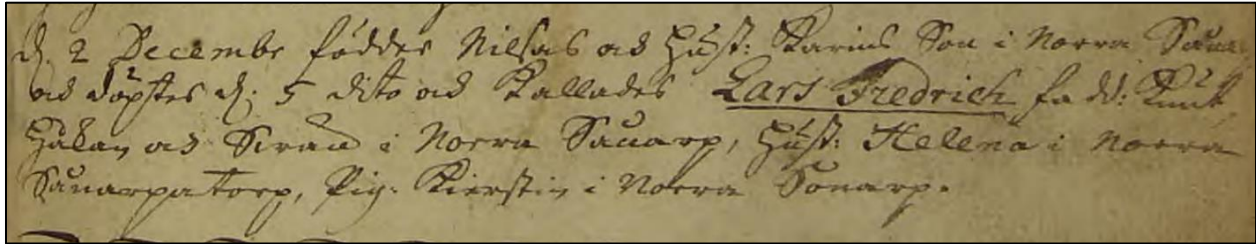 d. 2 Decembr föddes Nilsas och Hust: Karins Son i Norra
och döptes d: 5 dito och Kallades Lars Fredrich fadd:
Håkan och i Norra Sånarp, Hust: Helena i Norra
Sånarpatorp, Pig: Kierstin i Norra Sonarp.